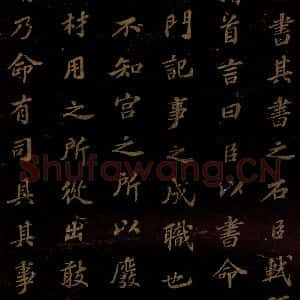 書其書之石臣軾
首言曰臣以書命
門記事之成職也
不知宮之所以廢
材用之所從出敢
乃命有司具其事
Shufawang.CN